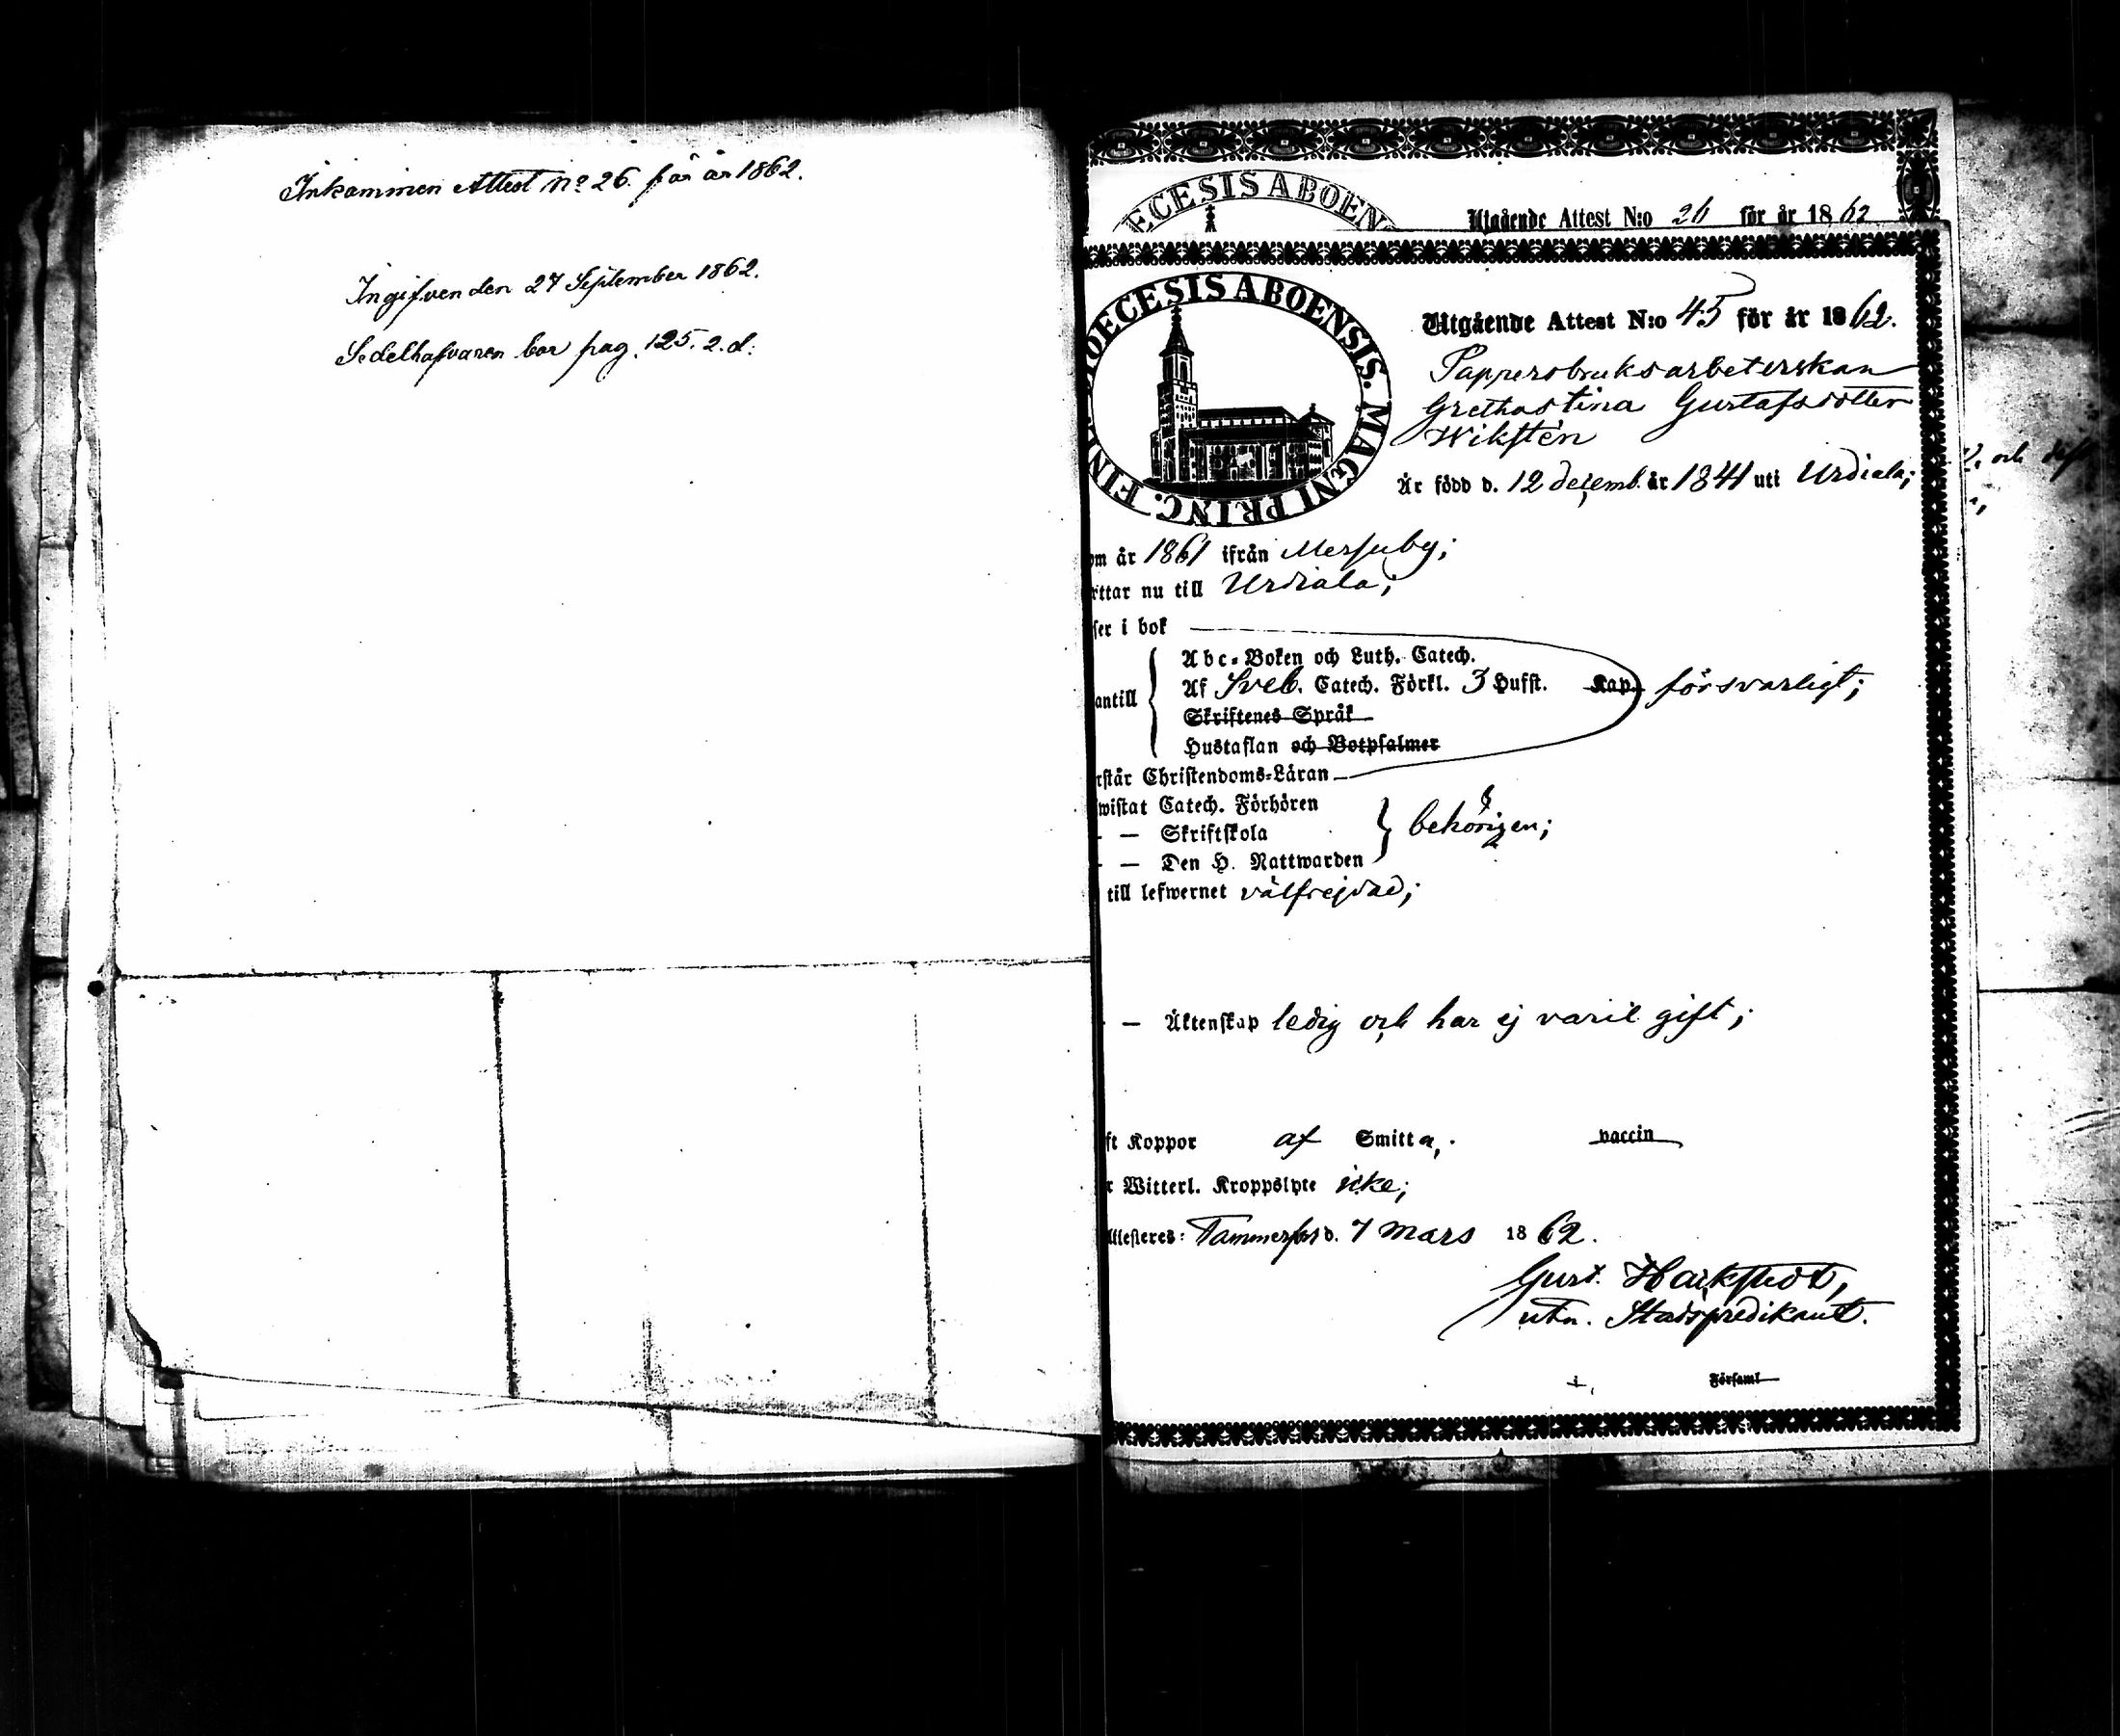 Inkommen Attest No 26. för år 1862.
Ingifven den 27 September 1862.
Sedelhafvaren bor pag. 125. 2. d:
ECESIS ABOEN
Utgående Attest N:o 26 för år 1862
DIOECESIS ABOENSIS. MAGNI PRINC. FIN
Utgående Attest N:o 45 för år 1862.
Pappersbruksarbeterskan
Grethastina Gustafsdotter
Wikstén
Är född d. 12 decemb. år 1844 uti Urdiala;
om år 1861 ifrån Messuby;
ttar nu till Urdiala;
ser i bok
Abc-Boken och Luth. Catech.
antill Af Sveb. Catech. Förkl. 3 Hufst. Kap. försvarligt;
Skriftenes Språk
Hustaflan och Botpsalmer
rstår Christendoms-Läran
wistat Catech. Förhören
— Skriftskola behörigen;
— Den H. Nattwarden
till lefwernet välfrejdad;
— Äktenskap ledig och har ej varit gift;
ft Koppor af Smitta, vaccin
r Witterl. Kroppslyte icke;
ttesteres: Tammerfors d. 7 Mars 1862.
Gust. Hackstedt,
utn. Stadspredikant.
i Församl
och